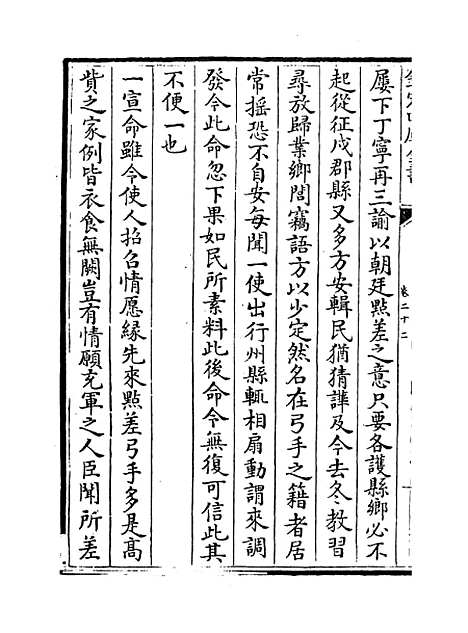 屢下丁寧再三諭以朝廷㸃差之意只要各護縣鄉必不
起從征戍郡縣又多方安輯民猶猜譁及今去冬教習
尋放歸業鄉閭竊語方以少定然名在弓手之籍者居
常揺恐不自安每聞一使出行州縣輒相扇動謂來調
發今此命忽下果如民所素料此後命令無復可信此其
不便一也
一宣命雖令使人招召情愿縁先來㸃差弓手多是髙
貲之家例皆衣食無闕豈有情願充軍之人臣聞所差
卷二十二